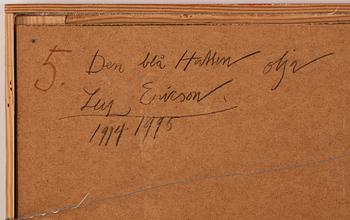 5. Den blå Hatten olja
Leif Ericson.
1994-1995